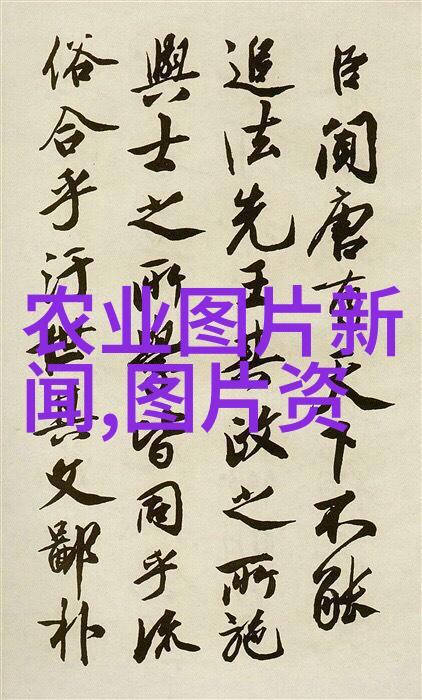 臣聞唐有天下不能
追法先王其政之所施
與士之所皆同乎流
俗合乎汙世其文鄙朴
农业图片新
闻,图片资